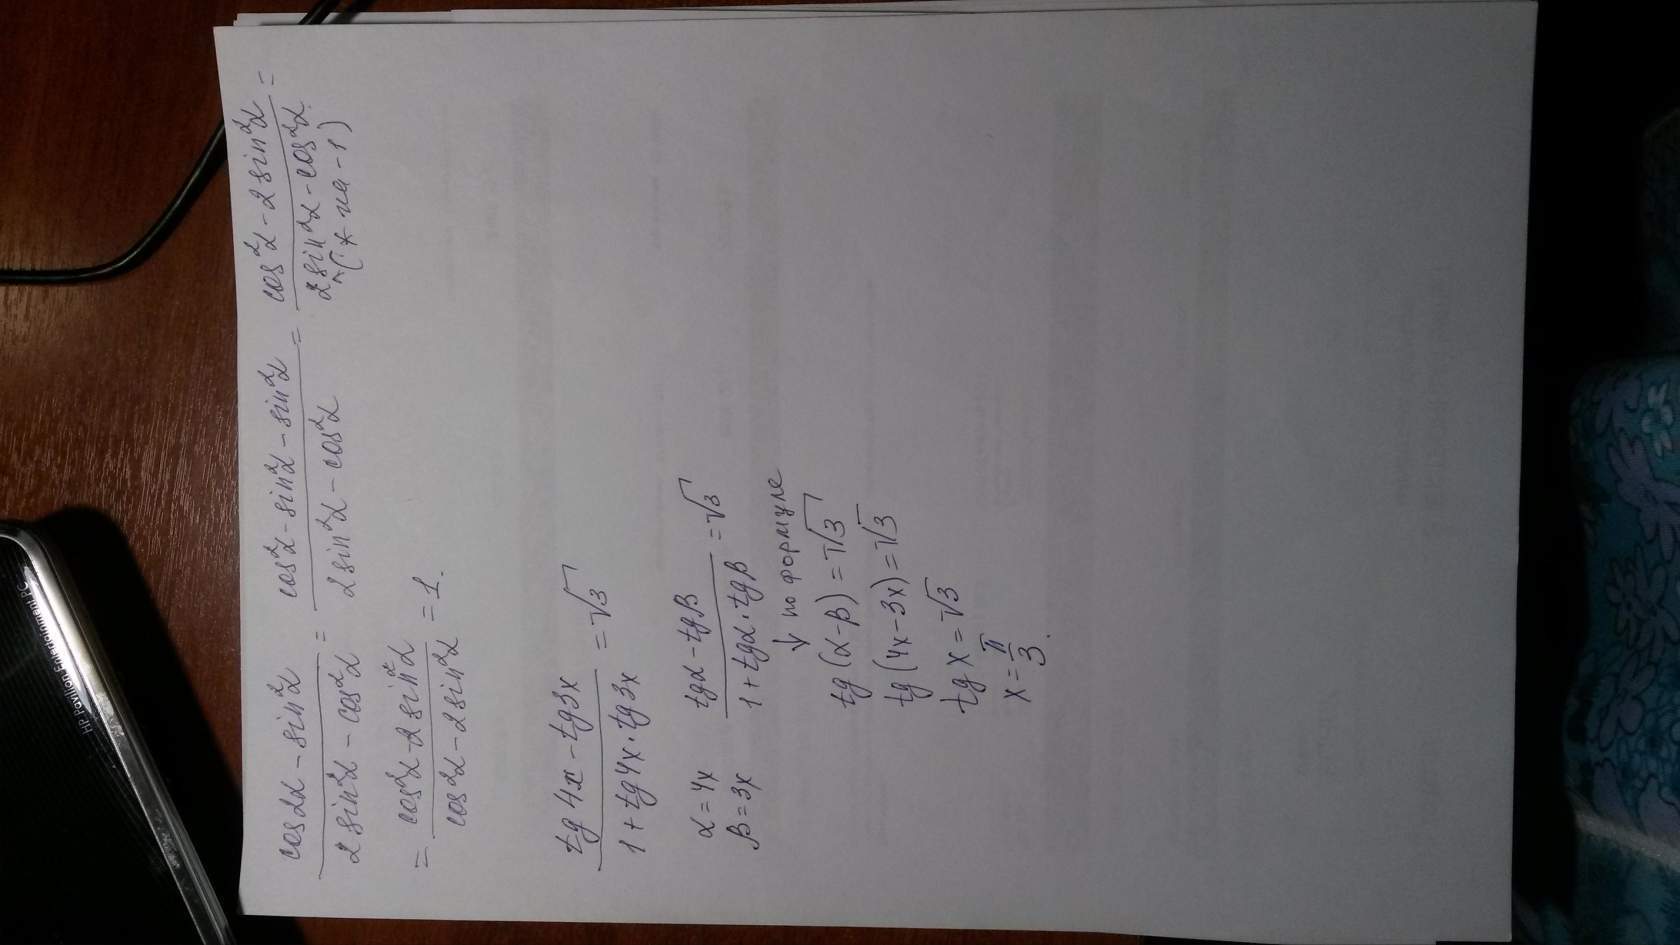 cos2α - sin²α / 2sin²α - cos²α = cos²α - sin²α - sin²α / 2sin²α - cos²α = cos²α - 2sin²α / 2sin²α - cos²α =
(* на -1)
= cos²α - 2sin²α / cos²α - 2sin²α = 1.
tg4x - tg3x / 1 + tg4x · tg3x = √3
α = 4x
β = 3x
tgα - tgβ / 1 + tgα · tgβ = √3
↓ по формуле
tg(α-β) = √3
tg(4x-3x) = √3
tg x = √3
x = π/3.
HP Pavilion Entertainment PC